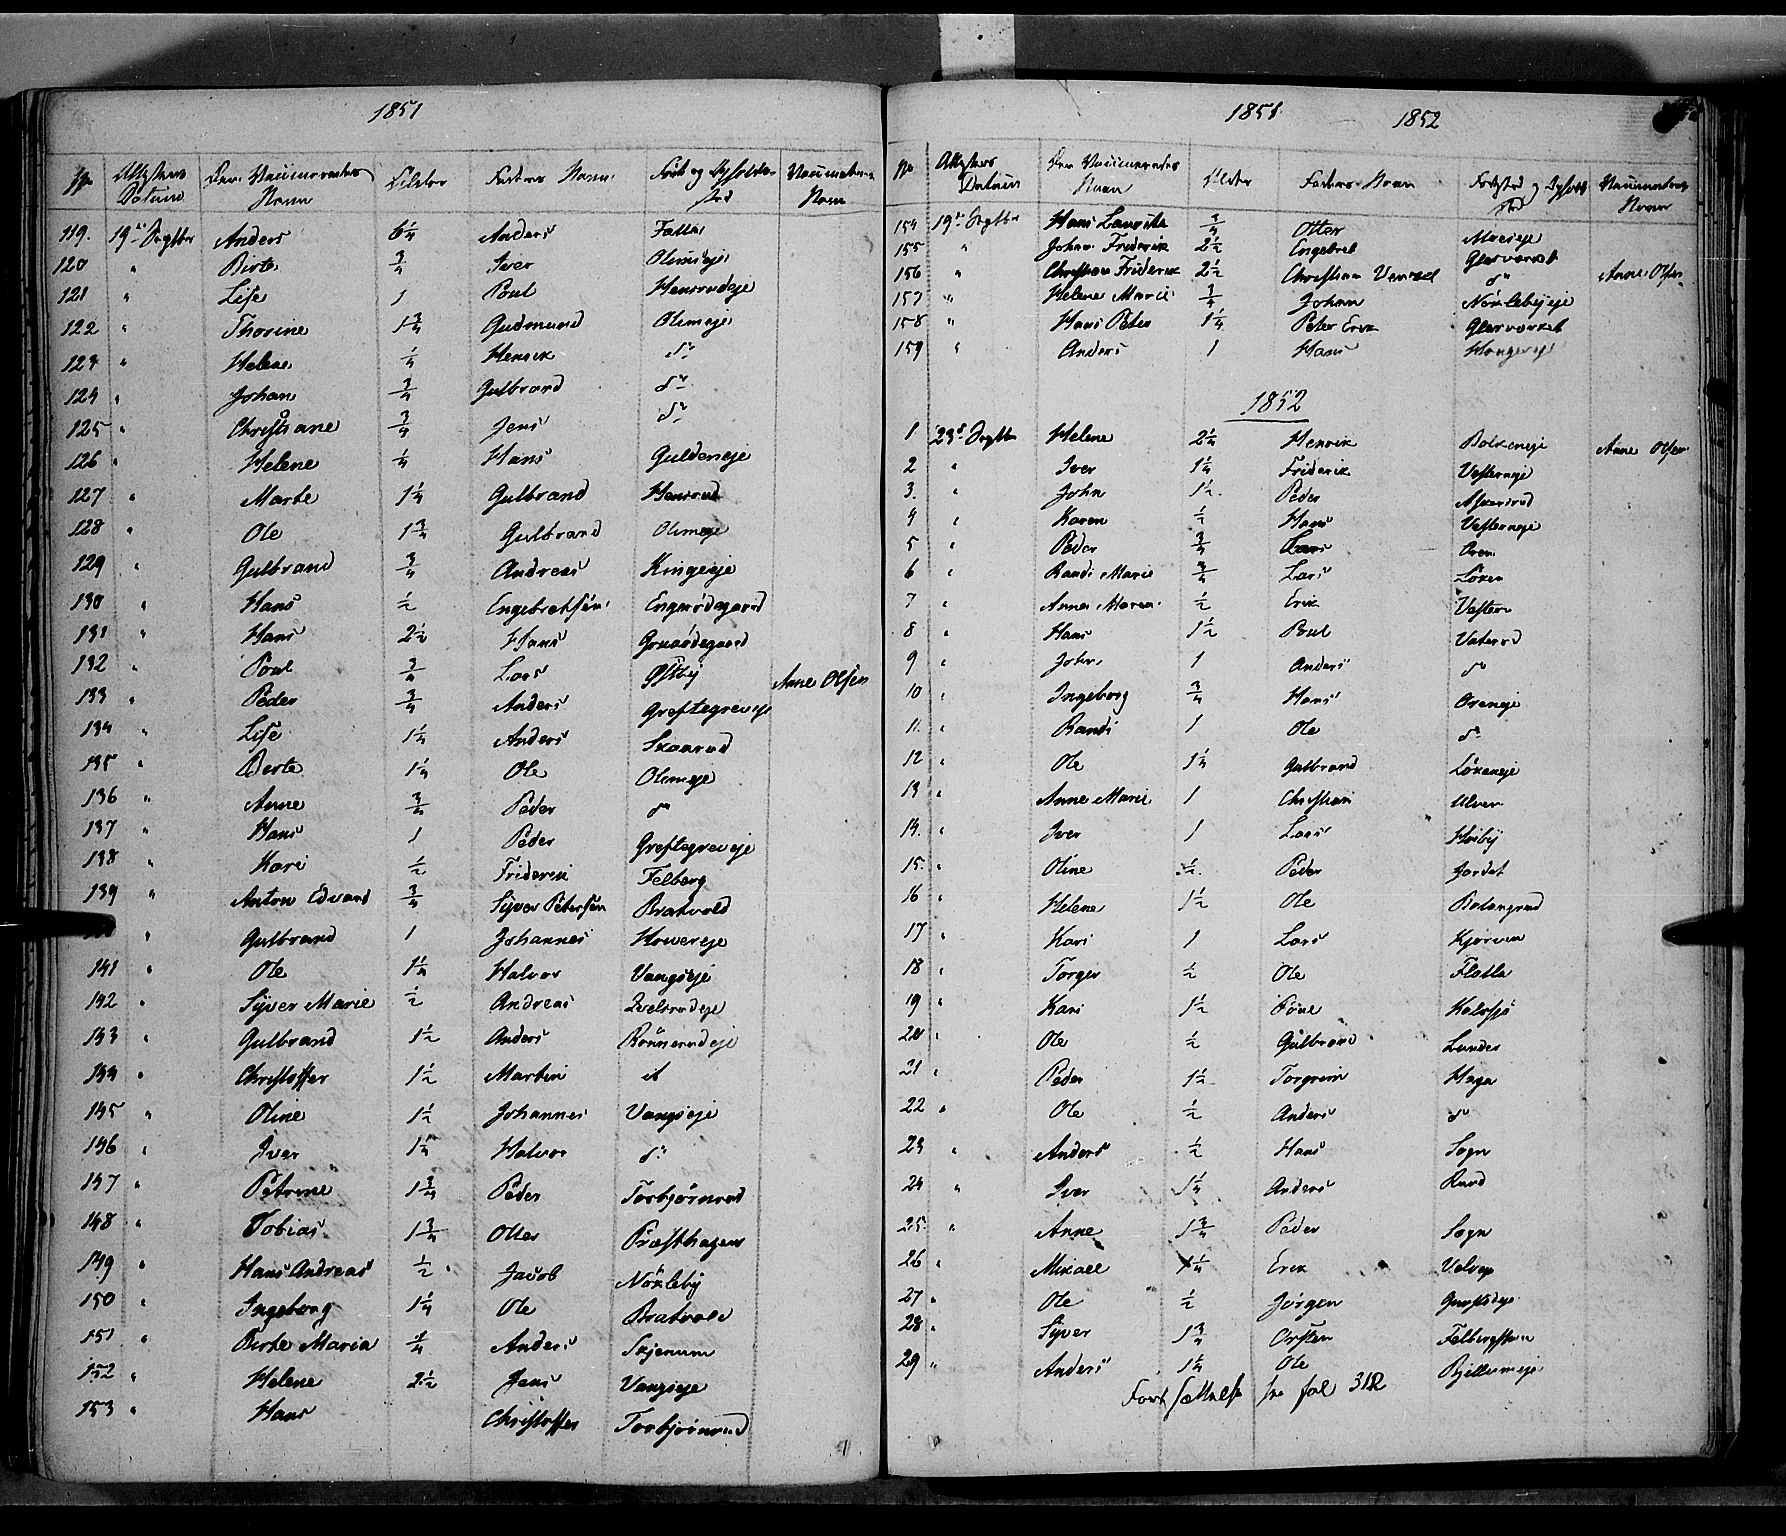 1851
No Attestens Datum Den Vaccineredes Navn Alder Faders Navn Vaccinateurens Navn
119. 19de Septbr Anders 6 1/4 Anders
120 " Birte 3/4 Iver Olimseje
121 " Lise 1 Poul Hensrudeje
122 " Thorine 1 3/4 Gudmund Olimseje
123 " Helene 1/4 Henrik do
124 " Johan 3/4 Gulbrand do
125 " Christiane 3/4 Jens do
126 " Helene 1/4 Hans Guldeneje
127 " Marte 1 1/4 Gulbrand Hensrud
128 " Ole 1 3/4 Gulbrand Olimeje
129 " Gulbrand 3/4 Andreas Kingeeje
130 " Hans 1/2 Engebretsen Engnødegaard
131 " Hans 2 1/2 Hans
132 " Poul 3/4 Lars Østby Anne Olsen
133 " Peder 3/4 Anders Greftegreveje
134 " Lise 1 1/4 Anders Skonrud
135 " Berte 1 1/4 Ole Olimeje
136 " Anne 3/4 Peder do
137 " Hans 1 Peder Greftegreveje
138 " Kari 1/2 Friderik Felberg
139 " Anton Edvard 3/4 Syver Petersen Bratvold
" Gulbrand 1 Johannes Howereje
141 " Ole 1 1/4 Halvor Vangseje
142 " Syver Marie 1/2 Andreas
143 " Gulbrand 1 1/2 Anders Rønnerudeje
144 " Christoffer 1 1/2 Martin
145 " Oline 1 1/2 Johannes Vangseje
146 " Iver 1 1/4 Halvor do
147 " Petrine 1 3/4 Peder Torbjørnrud
148 " Tobias 1 3/4 Præsthagen
149 " Hans Andreas 1/2 Jacob Nøkleby
150 " Ingeborg 1 1/4 Ole Bratvold
151 " Berte Maria 1/4 Anders Skjerum
152 " Helene 2 1/2 Jens Vangseje
153 " Hans Christoffer Torbjørnrud
1851 1852
No Attestens Datum Den Vaccineredes Navn Alder Faders Navn Vaccinateurens Navn
154 19de Septbr Hans Lauritz 3/4 Otter
155 " Johan Friderik 2 1/2 Engebret Glasværket
156 " Christian Friderik 2 1/2 Christian do Anne Olsen
157 " Helene Marie 3/4 Johan Nøklebyeje
158 " Hans Peter 1 1/4 Peter Erik Glasværket
159 " Anders 1 Hans
1852
1 23de Septbr Helene 2 1/4 Henrik Anne Olsen
2 " Iver 1 1/4 Friderik Vesterneje
3. " John 1 1/2 Peder
4 " Karen 1/2 Hans Vesterneje
5 " Peder 3/4 Lars Oren
6 " Randi Marie 3/4 Lars Løken
7 " Anne Maren 1/2 Erik Vestern
8 " Hans 1 1/2 Poul Vaterud
9 " John 1 Anders do
10 " Ingeborg 3/4 Hans Oreneje
11. " Randi 1 Ole do
12 " Ole 1 1/4 Gulbrand Løkeneje
13 " Anne Marie 1 Christian Ulven
14. " Iver 1 Lars Høiby
15. " Oline 1/2 Peder Jordet
16 " Helene 1 1/2 Ole
17 " Kari 1 Lars Kjørven
18 " Torger 1/2 Ole Flatla
19 " Kari 1 1/2 Poul Kalvsjø
20 " Ole 1/2 Gulbrand Lunder
21 " Peder 1 1/2 Torgrim Haga
22 " Ole 1/2 Anders do
23 " Anders 1/2 Hans Sogn
24 " Iver 1 1/4 Anders Rund
25. " Anne 1 3/4 Peder Sogn
26 " Mikael 1 1/4 Erik
27 " Ole 1/2 Jørgen
28 " Syver 1 3/4 Felbergshaun
29 " Anders 1 1/4 Ole Bjellumeje
Fortsættelse fol 312